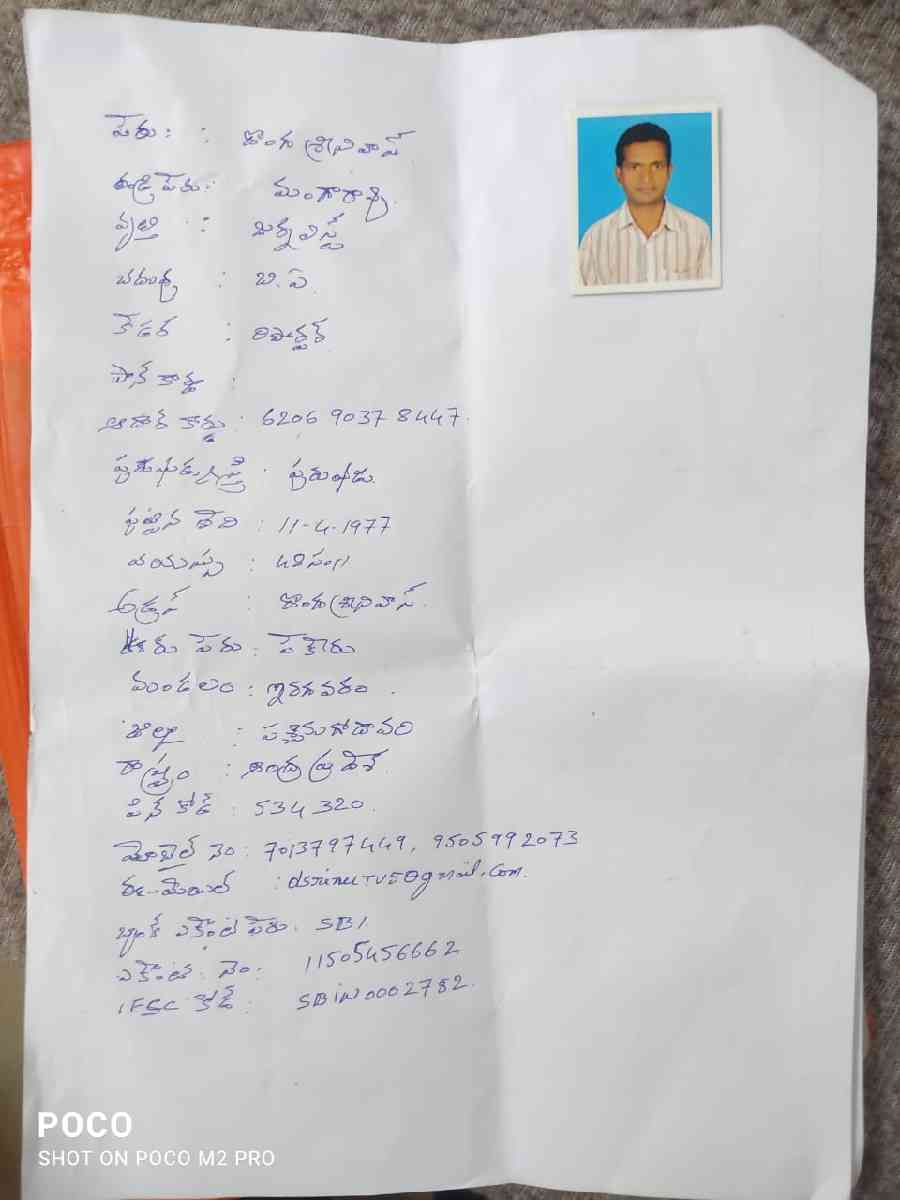 పేరు : : దొంగ శ్రీనివాస్
తండ్రి పేరు :
వృత్తి : : జర్నలిస్ట్
చదువు : బి.ఏ.
కేడర్ : రిపోర్టర్
పాన్ కార్డు :
ఆదార్ కార్డు : 6206 9037 8447.
పురుషుడు/స్త్రీ : పురుషుడు.
పుట్టిన తేది : 11-4-1977
వయస్సు : 48సం॥
అడ్రస్ : దొంగ శ్రీనివాస్.
ఊరు పేరు : పేకేరు
మండలం : ఇరగవరం .
జిల్లా : పశ్చిమగోదావరి
రాష్ట్రం : ఆంధ్ర ప్రదేశ్.
పిన్ కోడ్ : 534 320.
మొబైల్ నెం : 7013797449, 9505992073
ఈ-మెయిల్ :
బ్యాంక్ ఎకౌంట్ పేరు : SBI
ఎకౌంట్ నెం : 11505456662
IFSC కోడ్ : SBIN0002782.
POCO
SHOT ON POCO M2 PRO